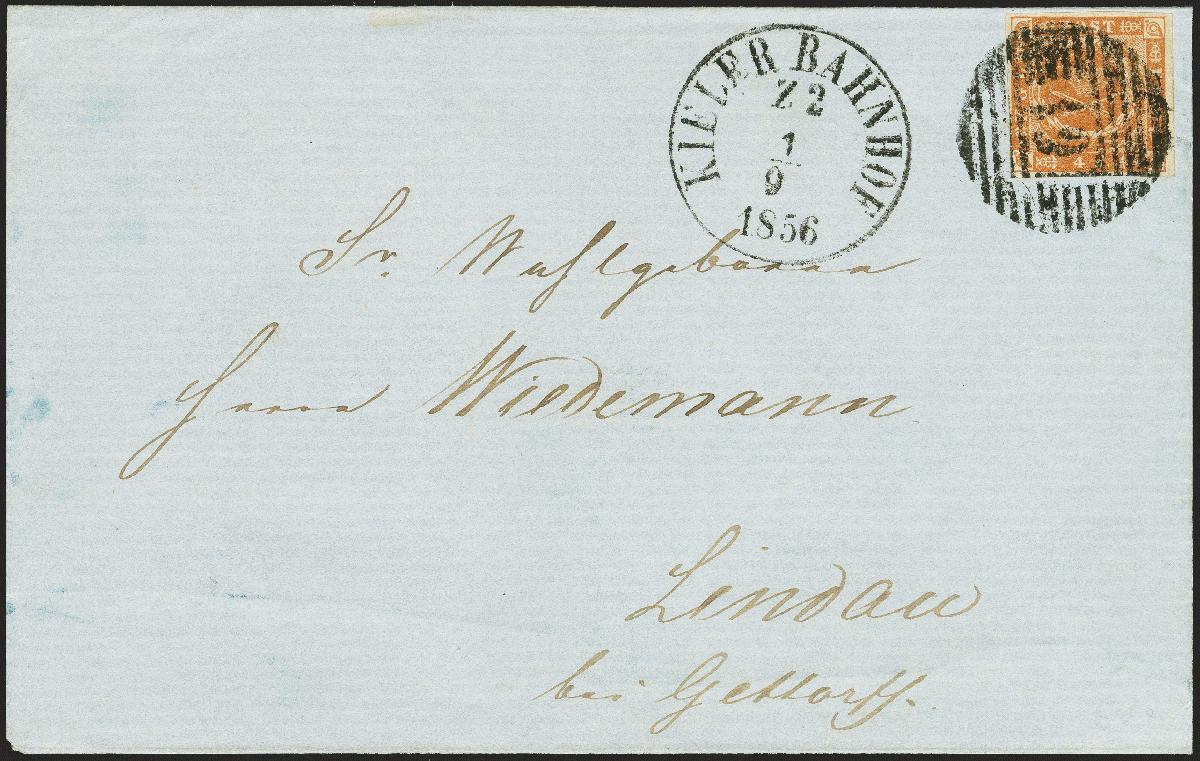 KIELER BAHNHOF
Z 2
1
9
1856
ST
4
Sr. Wohlgeboren
Herrn Wiedemann
Lindau
bei Gettorff.